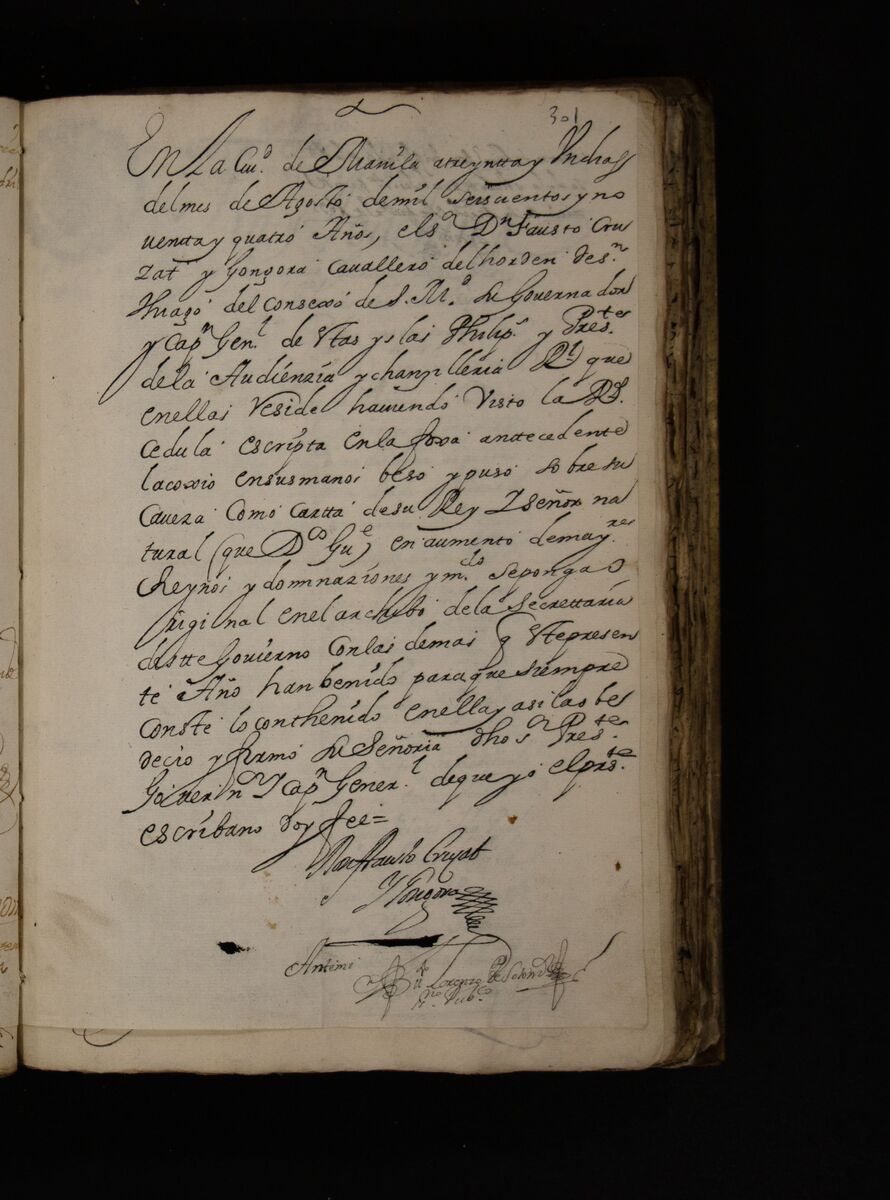 301
En La Ciud. de Manila a treyntta y Un dias
del mes de Agosto de mil seiscientos y no
uentta y quatro Años, el sr. Dn Fausto Cru
zat y Gongora Cavallero del horden de sn.
Thiago del Consexo de S. Md. su Governador
y Capn Genl. de Ytas yslas Philips. y Preste.
de la Audienzia y chanzilleria Rl. que
en ellas reside haviendo Visto la Rl.
Cedula escripta en la foxa anttecedente
la coxio en sus manos beso y puso sobre su
Caveza como cartta de su Rey Y señor na
tural (que Ds Gue) en aumento de mayres.
Reynos y dominaziones y mdo. se ponga O
riginal en el archibo de la Secrettaria
distte Govierno con las demas q Este presen
te Año han benido para que siempre
Conste lo conthenido en ella y asi lo obe
decio y firmo su Señoria dho sr Preste.
Governr. Y Capn Generl. de que yo el prste.
escribano doy fee=
Don Fausto Cruzat
Y Gongora
Antemi
Lorenzo
no. Pubco.